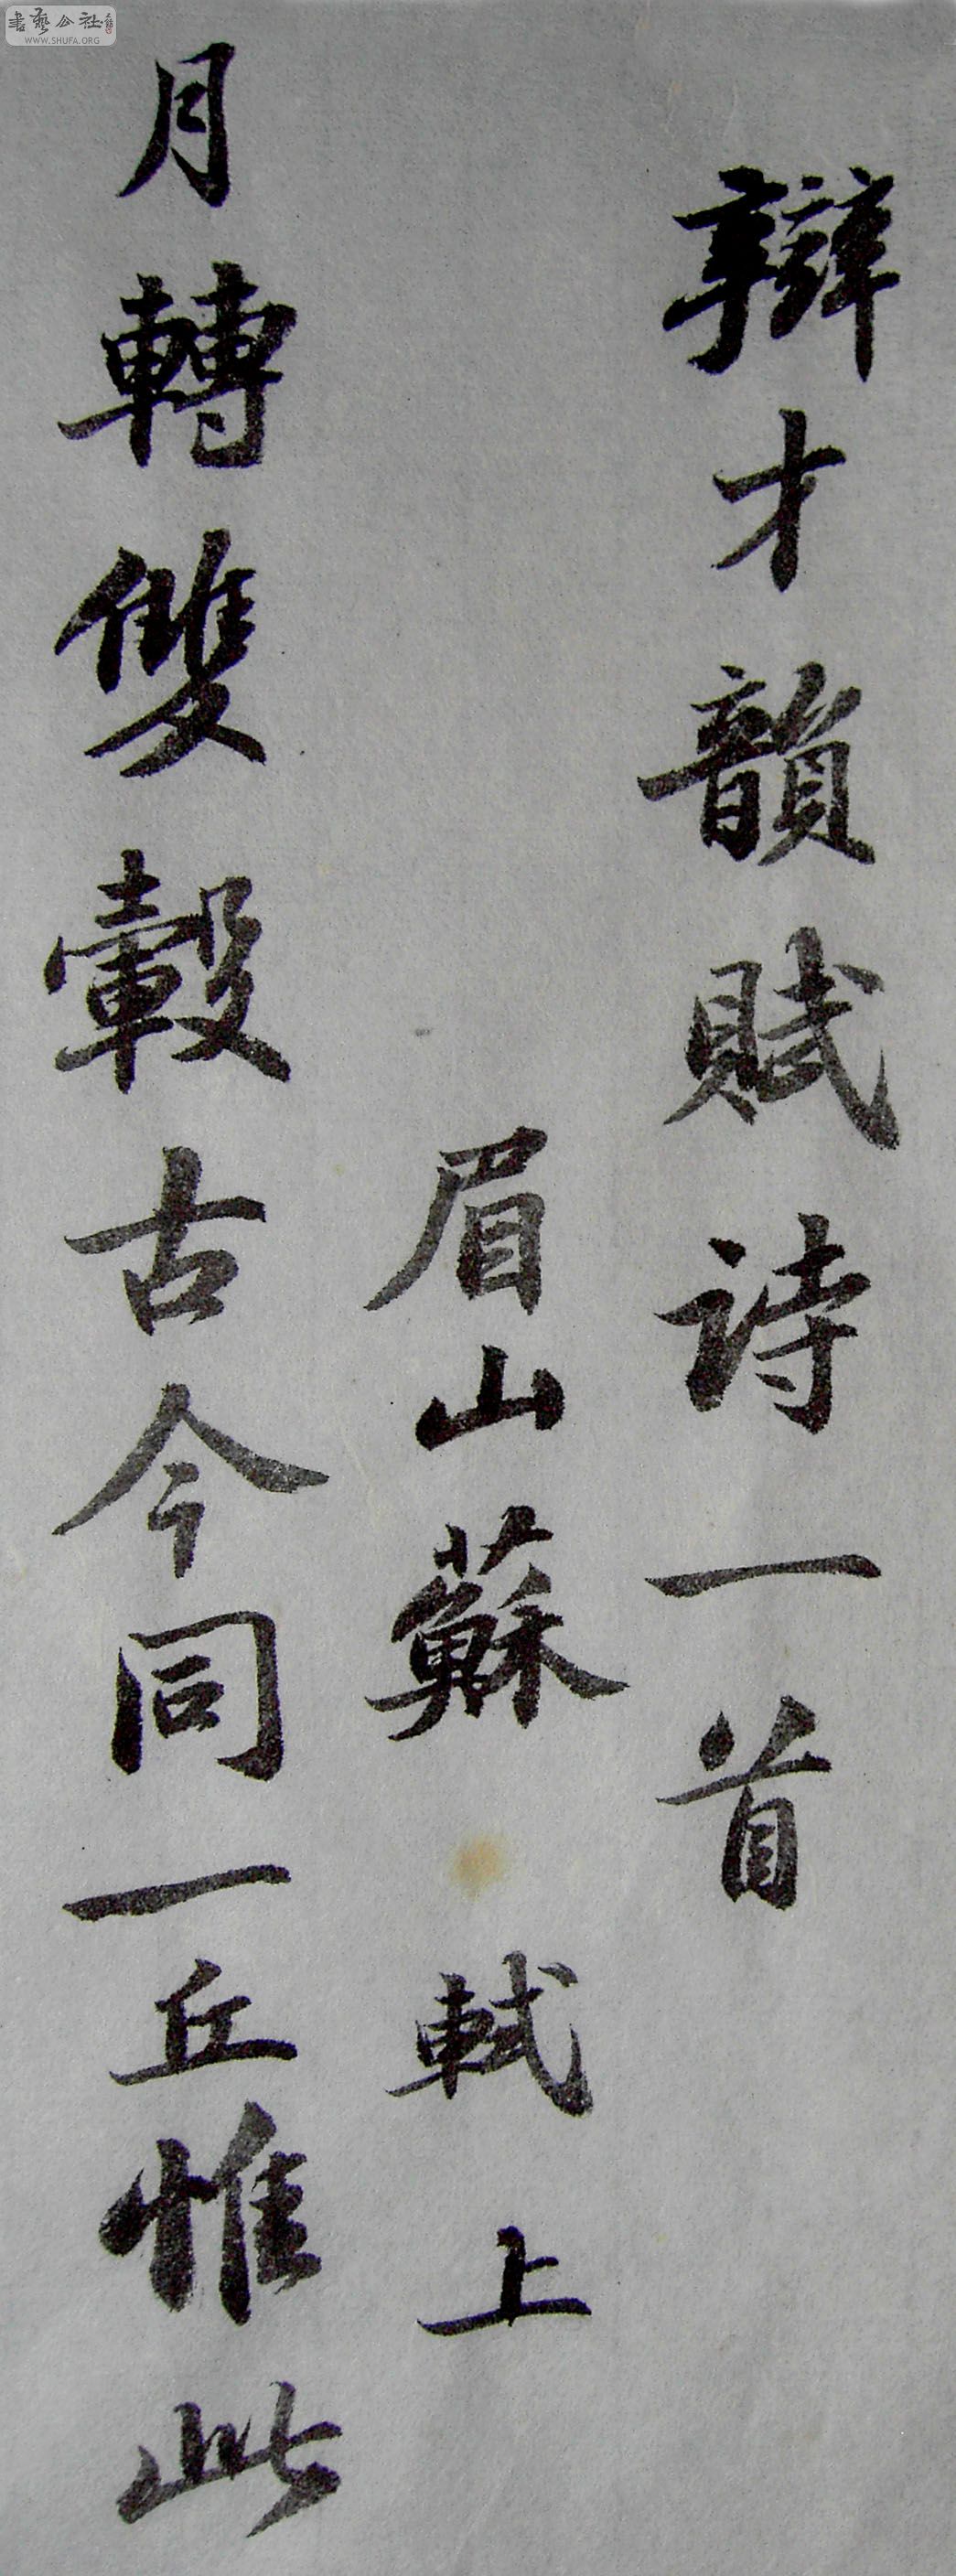 辯才韻賦詩一首
眉山蘇軾上
月轉雙轂古今同一丘惟此
書藝公社
WWW.SHUFA.ORG